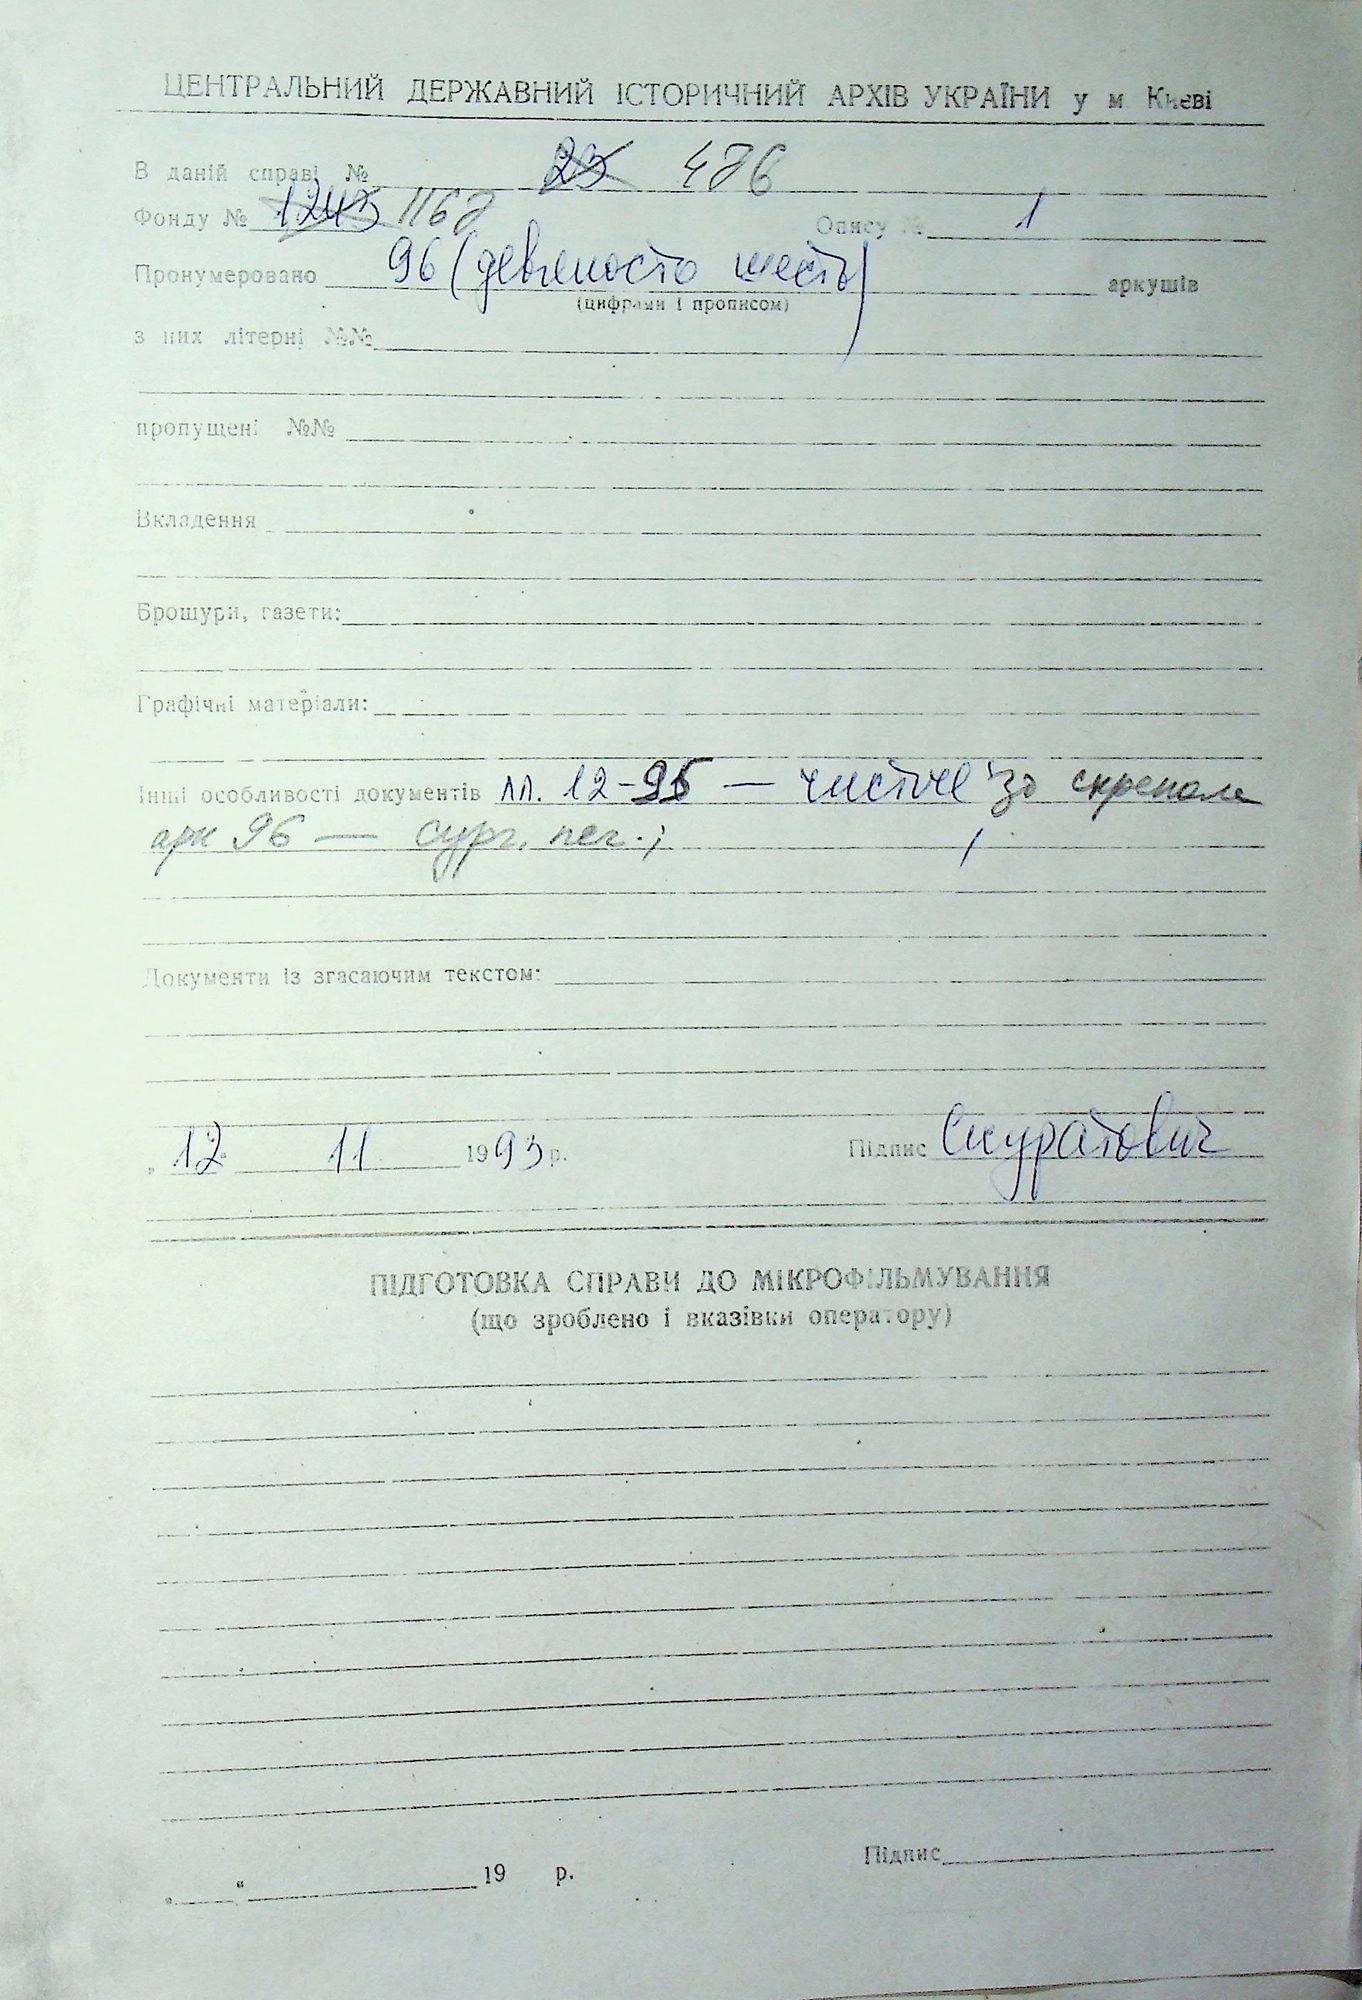 ЦЕНТРАЛЬНИЙ ДЕРЖАВНИЙ ІСТОРИЧНИЙ АРХІВ УКРАЇНИ у м Києві
В даній справі № 23 486
Фонду № 1243 1168 Опису № 1
Пронумеровано 96 (девяносто шесть) аркушів
(цифрами і прописом)
з них літерні №№
пропущені №№
Вкладення
Брошури, газети:
Графічні матеріали:
Інші особливості документів лл. 12-95 — чистые
арк 96 — сург. печ.;
Документи із згасаючим текстом:
„12“ 11 1993 р. Підпис Скуратович
ПІДГОТОВКА СПРАВИ ДО МІКРОФІЛЬМУВАННЯ
(що зроблено і вказівки оператору)
Підпис
„ “ 19 р.